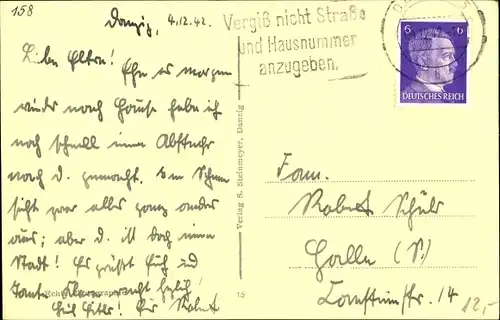 158
Danzig, 4.12.42.
Vergiß nicht Straße
und Hausnummer
anzugeben.
6 6
DEUTSCHES REICH
Liebe Eltern!
Ehe es morgen
wieder nach Hause habe ich
noch schnell einen Abstecher
nach D. gemacht. Im Schnee
sieht zwar alles ganz anders
aus; aber D. ist doch eine
Stadt! Es grüßt Euch und
Tante
Heil Hitler! Eur Robert
Verlag S. Steinmeyer, Danzig
15
Fam.
Robert Schülz
Halle (S.)
14
12,-